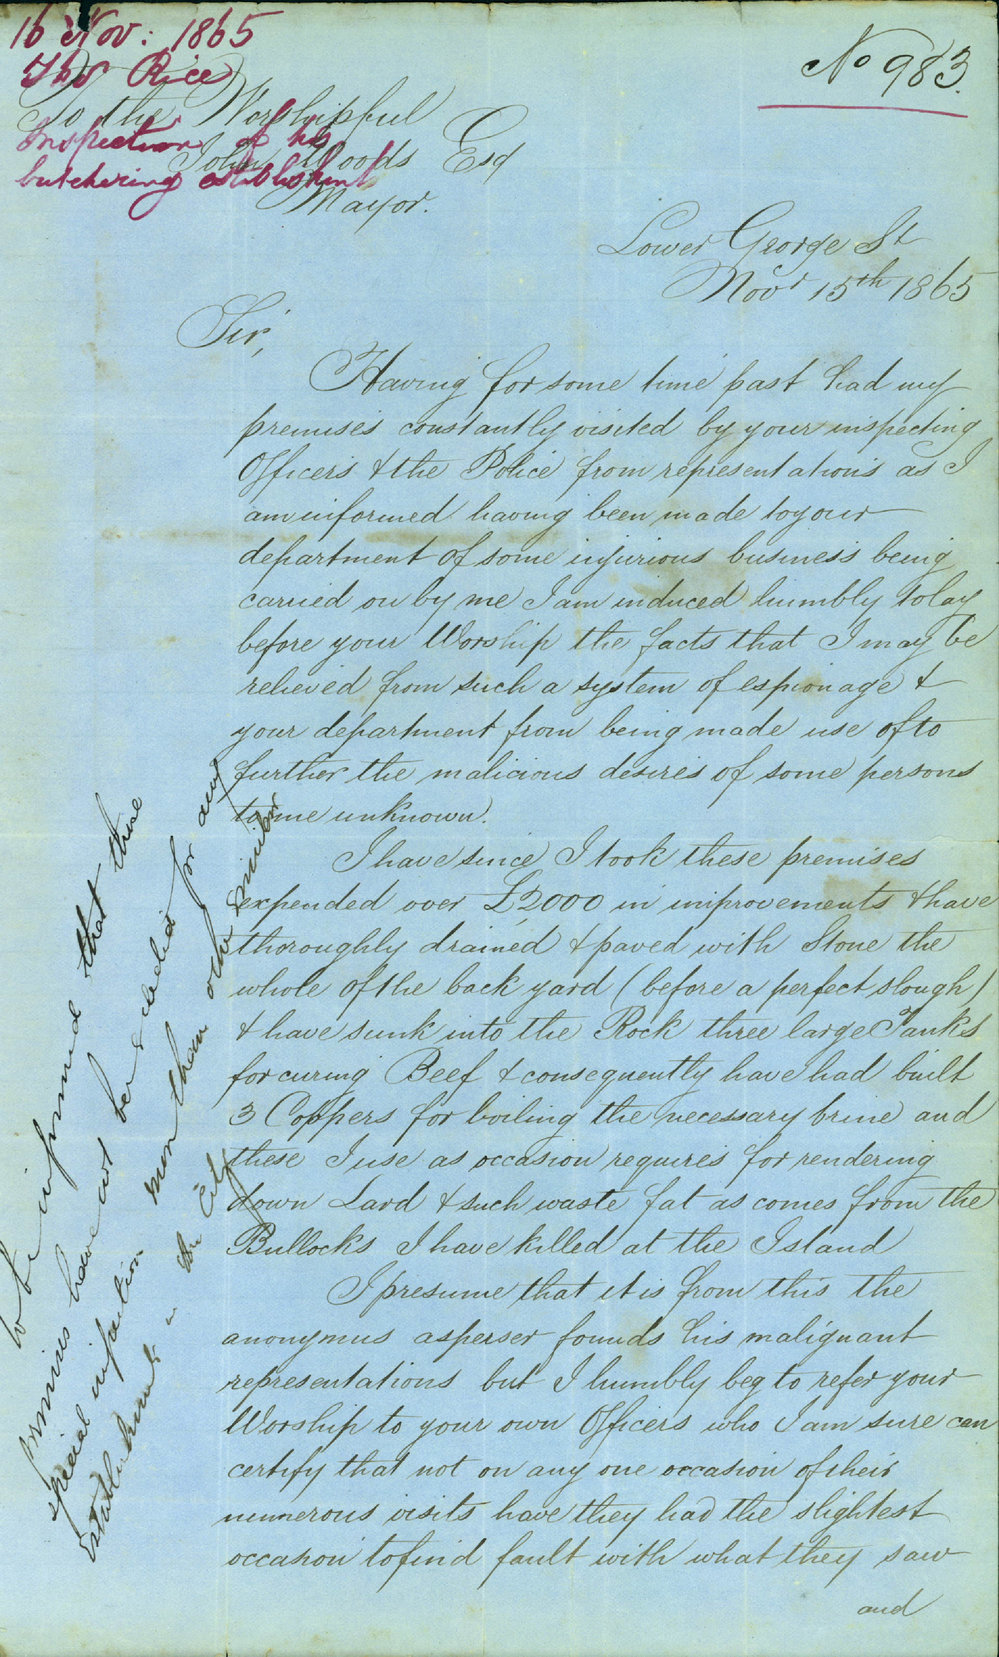 16 Nov: 1865
Thos Rice
Inspection of his
butchering establishment
No 983.
To the Worshipful
John Woods Esq
Mayor.
Lower George St
Novr 15th 1865
Sir,
Having for some time past had my
premises constantly visited by your inspecting
Officers & the Police from representations as I
am informed having been made to your
department of some injurious business being
carried on by me I am induced humbly to lay
before your Worship the facts that I may be
relieved from such a system of espionage &
your department from being made use of to
further the malicious desires of some persons
to me unknown.
I have since I took these premises
expended over £2000 in improvements & have
thoroughly drained & paved with Stone the
whole of the back yard (before a perfect slough)
& have sunk into the Rock three large Tanks
for curing Beef & consequently have had built
3 Coppers for boiling the necessary brine and
these I use as occasion requires for rendering
down Lard & such waste fat as comes from the
Bullocks I have killed at the Island
I presume that it is from this the
anonymus asperser founds his malignant
representations but I humbly beg to refer your
Worship to your own Officers who I am sure can
certify that not on any one occasion of their
numerous visits have they had the slightest
occasion to find fault with what they saw
and
to be informed that these
premises have not been selected for any
special inspection more than other similar
Establishments in the City